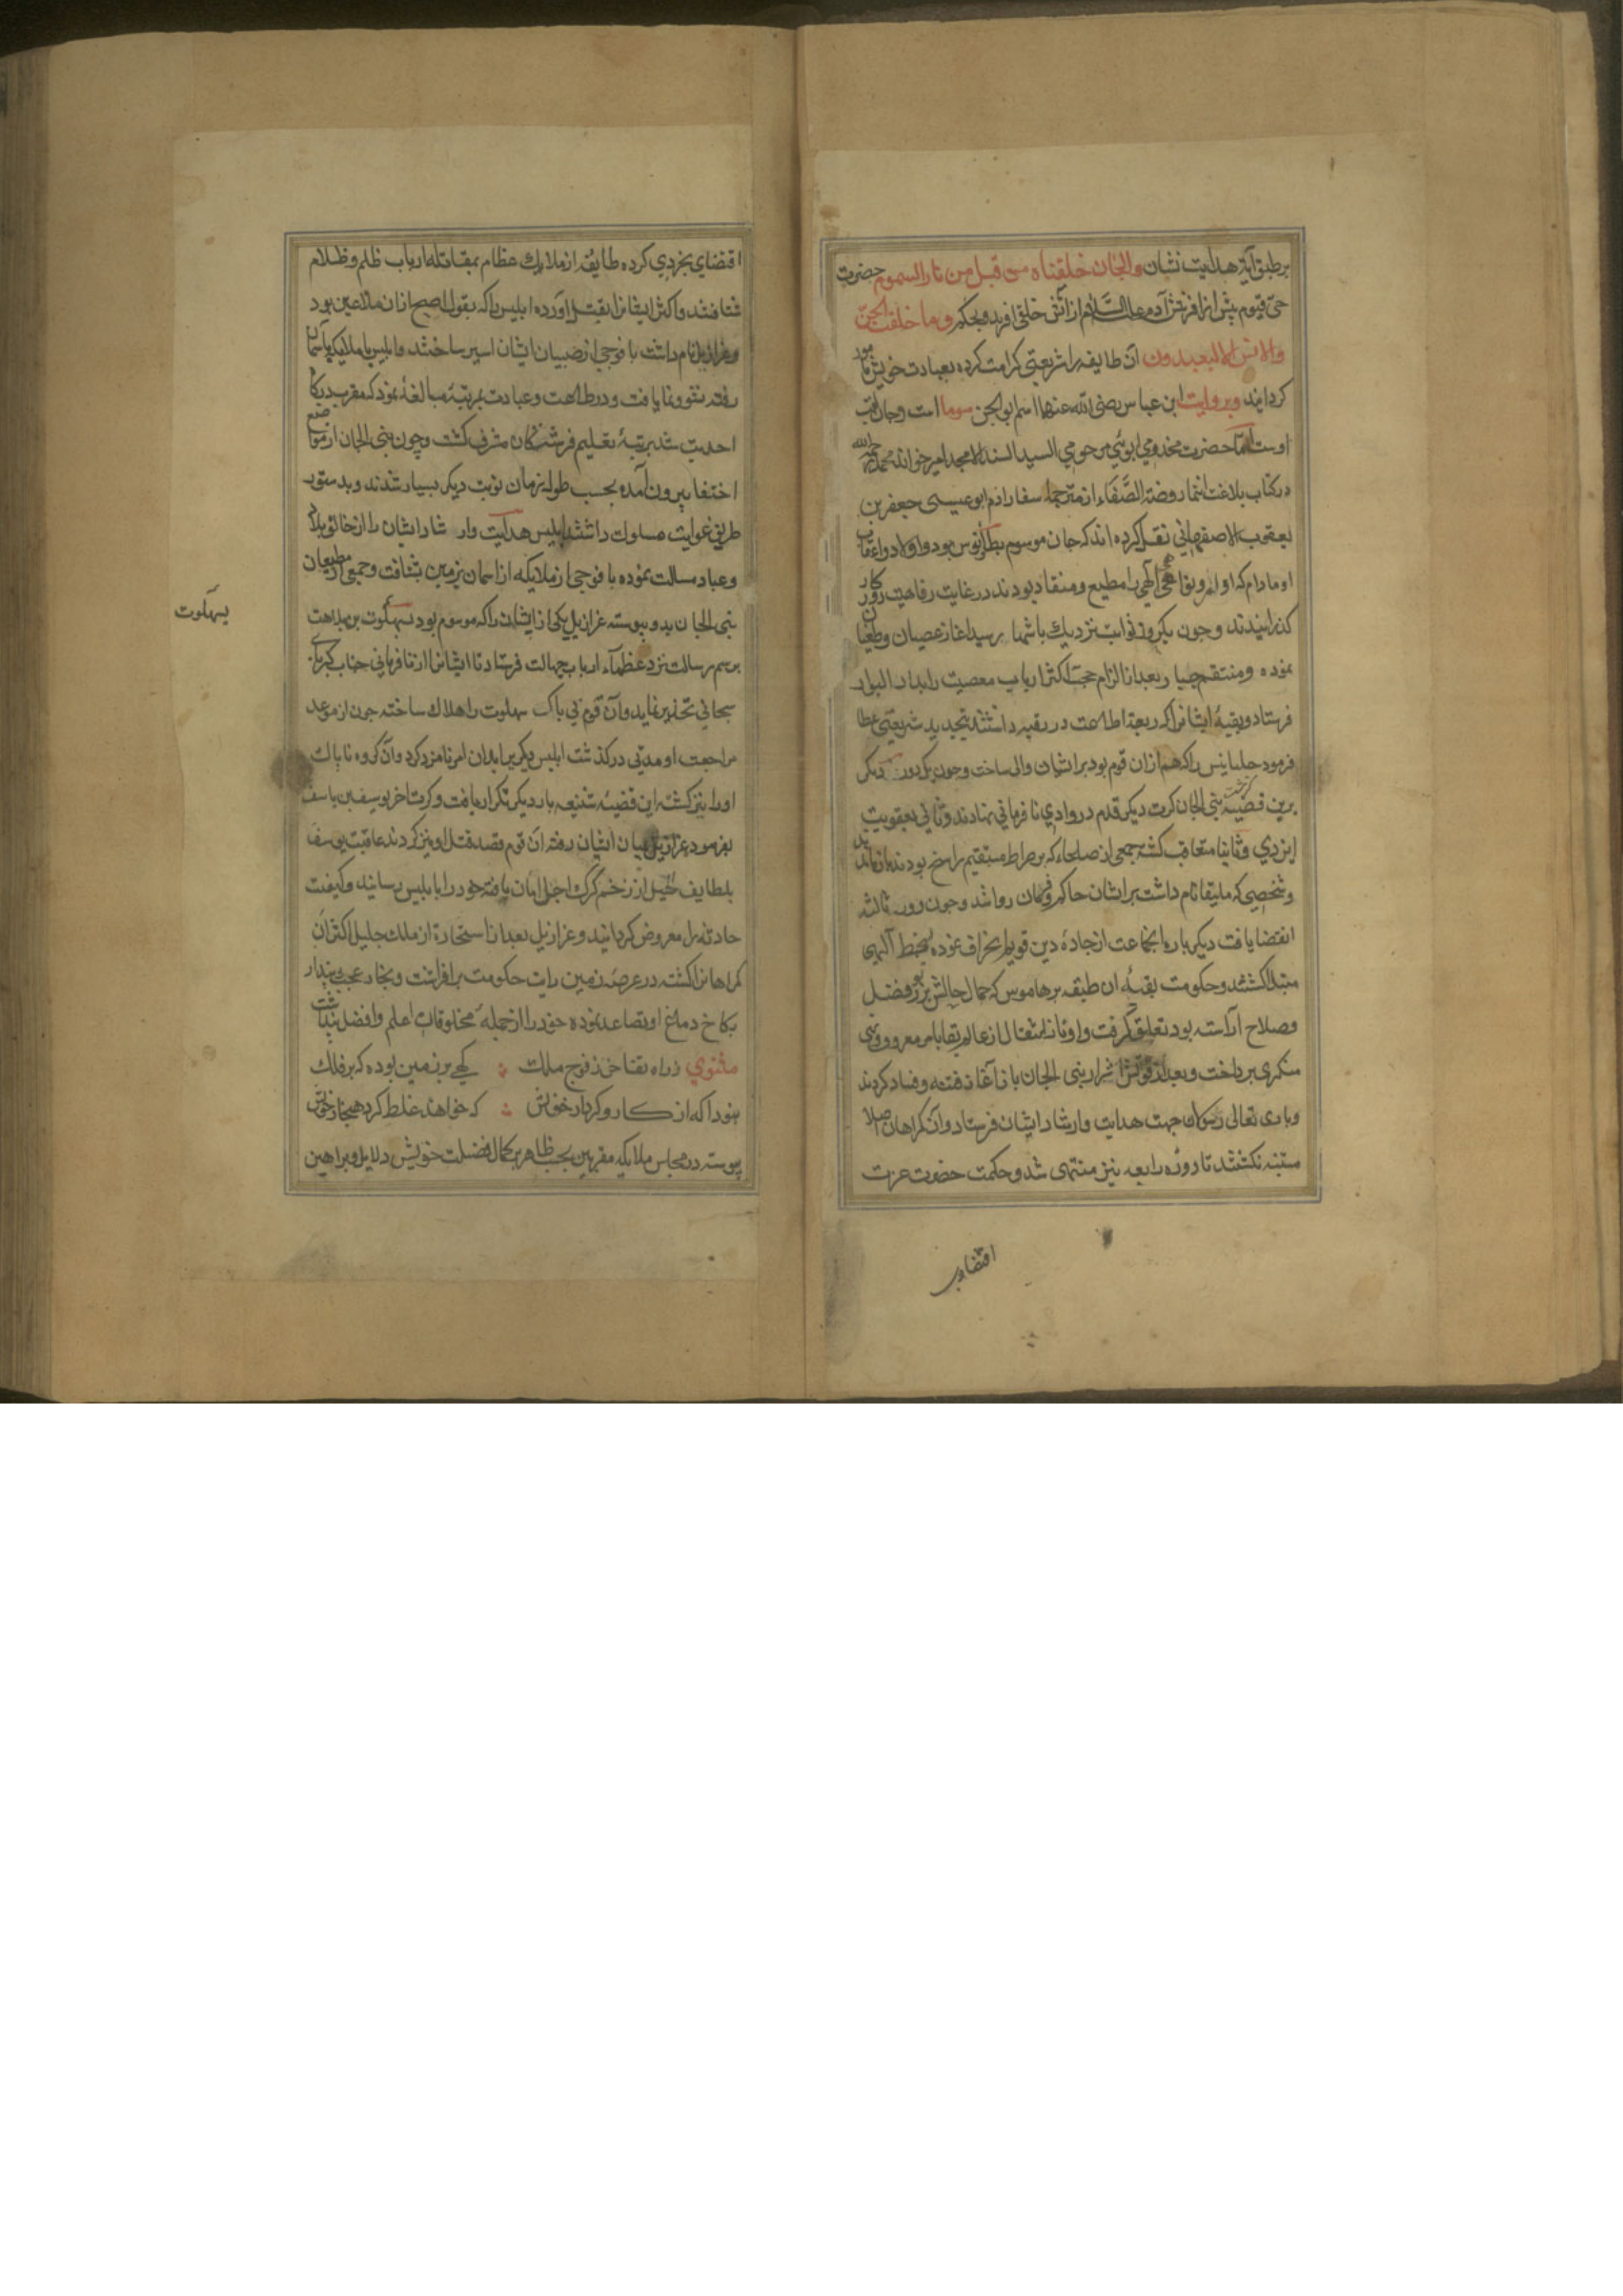 برطبق آیه هدایت نشان والجان خلقناه من قبل من نار السموم حضرت
حی قیوم پیش از افرینش آدم علیه السلام از آتش خلقی افرید و بحکم و ما خلقت الجن
والانس الا لیعبدون آن طایفه را شریعتی کرامت کرده بعبادت خویش مامور
کردانید و بروایت ابن عباس رضی الله عنهما اسم ابو الجن سوما است و جان لقب
اوست اما حضرت مخدومی ابوئی مرحومی السید السند الامجد امیر خواند محمد رحمه الله
در کتاب بلاغت انتما روضة الصفاء از مترجمان سفارادم ابو عیسی جعفر بن
یعقوب الاصفهانی نقل کرده اند که جان موسوم بطارنوس بود و اولاد و اعقاب
او مادام که اوامر و نواهی الهی را مطیع و منقاد بودند در غایت رفاهیت روزکار
کذرانیدند و چون یکروز ثوابت نزدیک باشها رسید اغاز عصیان و طغیان
نموده و منتقم جبار بعد از الزام حجت اکثر ارباب معصیت را بدار البوار
فرستاد و بقیه ایشانرا که ربقه اطاعت در رقبه داشتند بتجدید شریعتی عطا
فرمود حلیانیس را که هم ازان قوم بود بر ایشان والی ساخت و چون یکدور دیکر
برین قضیه کذشت بنی الجان کرت دیکر قدم در وادی نافرمانی نهادند و ثانی بعقوبت
ایزدی و ثانیا متعاقب کشته جمعی از صلحاء که بر صراط مستقیم راسخ بودند بماندند
و شخصی که ملیقا نام داشت بر ایشان حاکم و فرمان روا شد و چون دور ثالث
انقضا یافت دیکر باره انجماعت از جاده دین قویم انحراف نموده بسخط آلهی
مبتلا کشتند و حکومت بقیه ان طبقه بر هاموس که جمال حالش بزیور فضل
و صلاح آراسته بود تعلق کرفت و او تا زمان انتقال از عالم بقا بامر معروف و نهی
منکری پرداخت و بعد از فوتش اشرار بنی الجان باز آغاز فتنه و فساد کردند
و باری تعالی رسولان جهت هدایت و ارشاد ایشان فرستاد و آن کمراهان اصلا
متنبه نکشتند تا دوره رابعه نیز منتهی شد و حکمت حضرت عزت
اقتضای
اقتضای بخردی کرده طایفه از ملایک عظام بمقاتله ارباب ظلم و ظلام
شتافتند و اکثر ایشانرا بقتل آورده ابلیس را که بقول اصح ازان ملاعین بود
و عزازیل نام داشت با فوجی از صبیان ایشان اسیر ساختند و ابلیس با ملایکه بآسمان
رفته نشو و نما یافت و در طاعت و عبادت بمرتبه مبالغه نمود که مقرب درکاه
احدیت شد بمرتبه تعلیم فرشتکان مشرف کشت و چون بنی الجان از مواضع
اختفا بیرون آمده بحسب طول زمان نوبت دیکر بسیار شدند و بدستور
طریق غوایت مسلوک داشتند ابلیس هدایت و ارشاد ایشان را از خالق بلاد
و عباد مسالت نموده با فوجی از ملایکه از اسمان بزمین شتافت و جمعی از مطیعان
بنی الجان بدو پیوسته عزازیل یکی از ایشان را که موسوم بود بسهلوت بن بلاهت
برسم رسالت نزد عظماء ارباب جهالت فرستاد تا ایشانرا از نافرمانی جناب کبریای
سبحانی تحذیر نماید و آن قوم بی باک سهلوت را هلاک ساخته چون از موعد
مراجعت او مدتی درکذشت ابلیس دیکری را بدان امر نامزد کرد و آن کروه ناپاک
اورا نیز کشته این قضیه شنیعه بار دیکر تکرار یافت و کرت اخر یوسف بن یاسف
بفرموده عزازیل میان ایشان رفته آن قوم قصد قتل او نیز کردند عاقبت یوسف
بلطایف الحیل از زخم کرک اجل امان یافته خود را بابلیس رسانید و کیفیت
حادثه را معروض کردانید و عزازیل بعد از استجازه از ملک جلیل اکثر آن
کمراهانرا کشته در عرصه زمین رایت حکومت برافراشت و بخار عجب و پندار
بکاخ دماغ او تصاعد نموده خود را از جمله مخلوقات اعلم و افضل پنداشت
مثنوی زراه تفاخر ز فوج ملک کهی بر زمین بود و که بر فلک
نبود اکه از کار و کردار خویش که خواهد غلط کرد هنجار خویش
پیوسته در مجالس ملایکه مقربین بحسب ظاهر بر کمال فضیلت خویش دلایل و براهین
یسهلوت